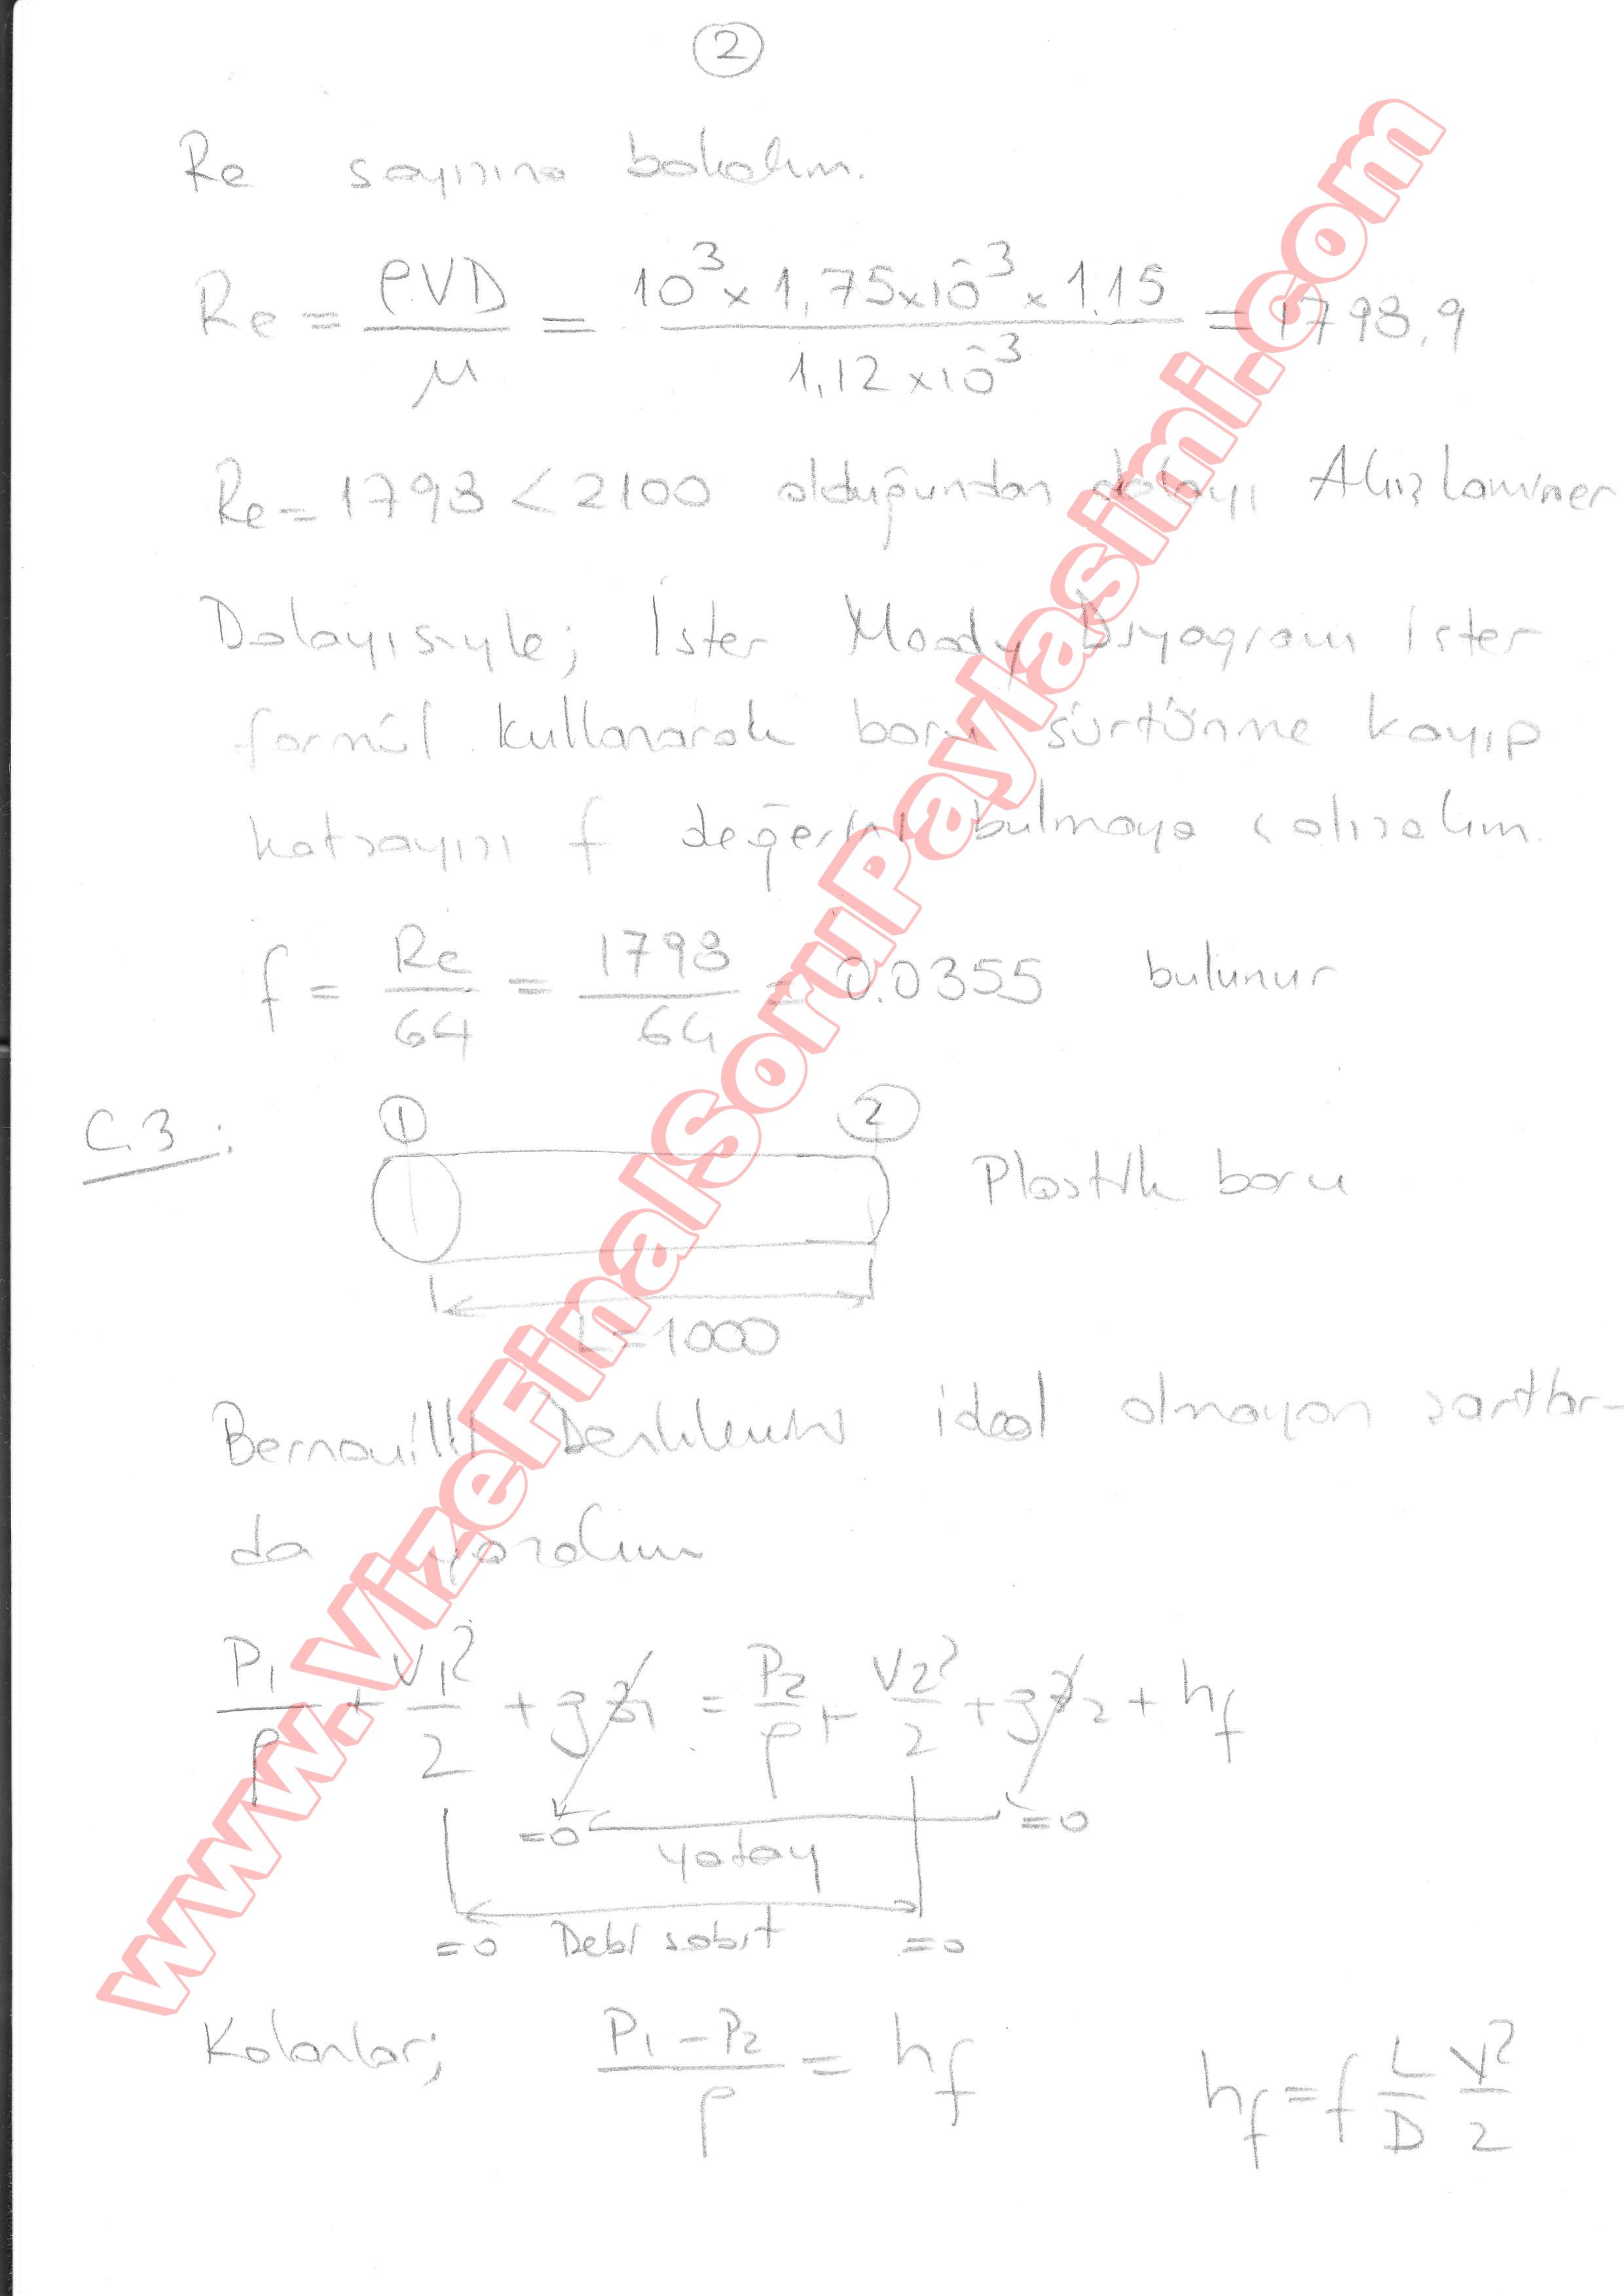 2
Re sayısına bakalım.
Re = ρVD / μ = 10³ x 1,75x10⁻³ x 1.15 / 1,12 x10⁻³ = 1798,9
Re = 1798 < 2100 olduğundan dolayı Akış Laminer
Dolayısıyle; İster Moody Diyagramı ister
formül kullanarak boru sürtünme kayıp
katsayısı f değerini bulmaya çalışalım.
f = Re / 64 = 1798 / 64 = 0.0355 bulunur
C.3 :
1 2
Plastik boru
L = 1000
Bernouilli Denklemini ideal olmayan şartlar-
da yazalım
P₁/ρ + V₁²/2 + gz₁ = P₂/ρ + V₂²/2 + gz₂ + hf
=0 yatay =0
=0 Debi sabit =0
Kalanlar; P₁ - P₂ / ρ = hf hf = f L/D V²/2
www.VizeFinalSoruPaylasimi.com